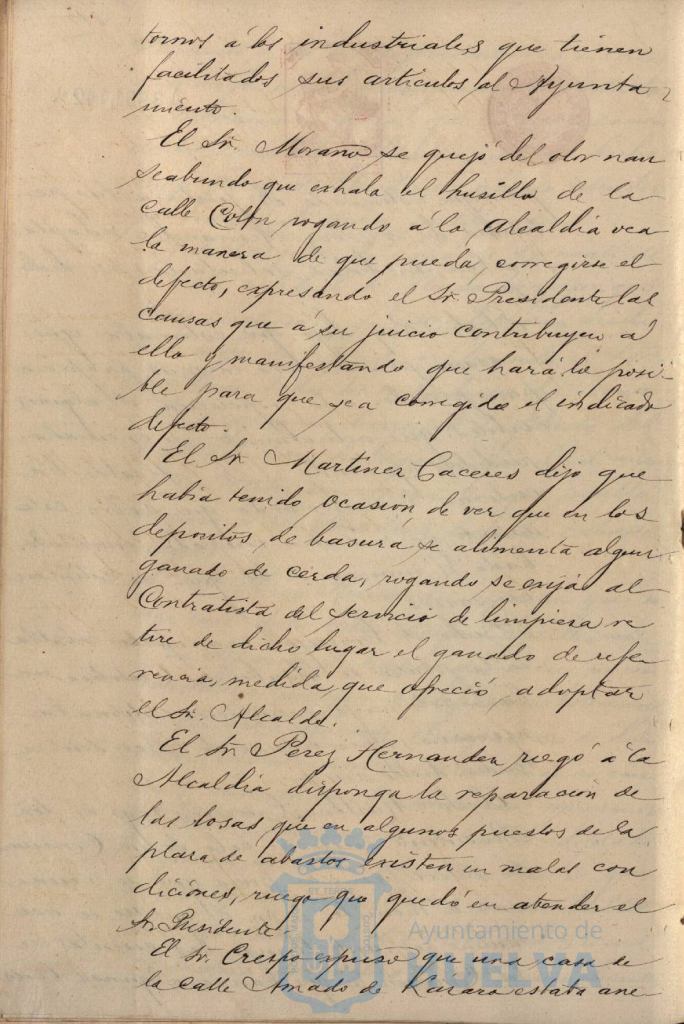 tornos á los industriales que tienen
facilitados sus artículos al Ayunta
miento.
El Sr. Moraño se quejó del olor nau
seabundo que exhala el husillo de la
calle Colón rogando á la Alcaldía vea
la manera de que pueda corregirse el
defecto, expresando el Sr. Presidente las
causas que á su juicio contribuyen á
ello y manifestando que hará lo posi-
ble para que sea corregido el indicado
defecto.
El Sr. Martinez Caceres dijo que
había tenido ocasión de ver que en los
depositos de basura se alimenta algun
ganado de cerda, rogando se exija al
Contratista del servicio de limpieza re
tire de dicho lugar el ganado de refe
rencia, medida que ofreció adoptar
el Sr. Alcalde.
El Sr. Perez Hernandez rogó á la
Alcaldía disponga la reparación de
las losas que en algunos puestos de la
plaza de abastos existen en malas con
diciones, ruego que quedó en atender el
Sr. Presidente.
El Sr. Crespo expuso que una casa de
la calle Amado de Lázaro estaba ane
Ayuntamiento de
HUELVA